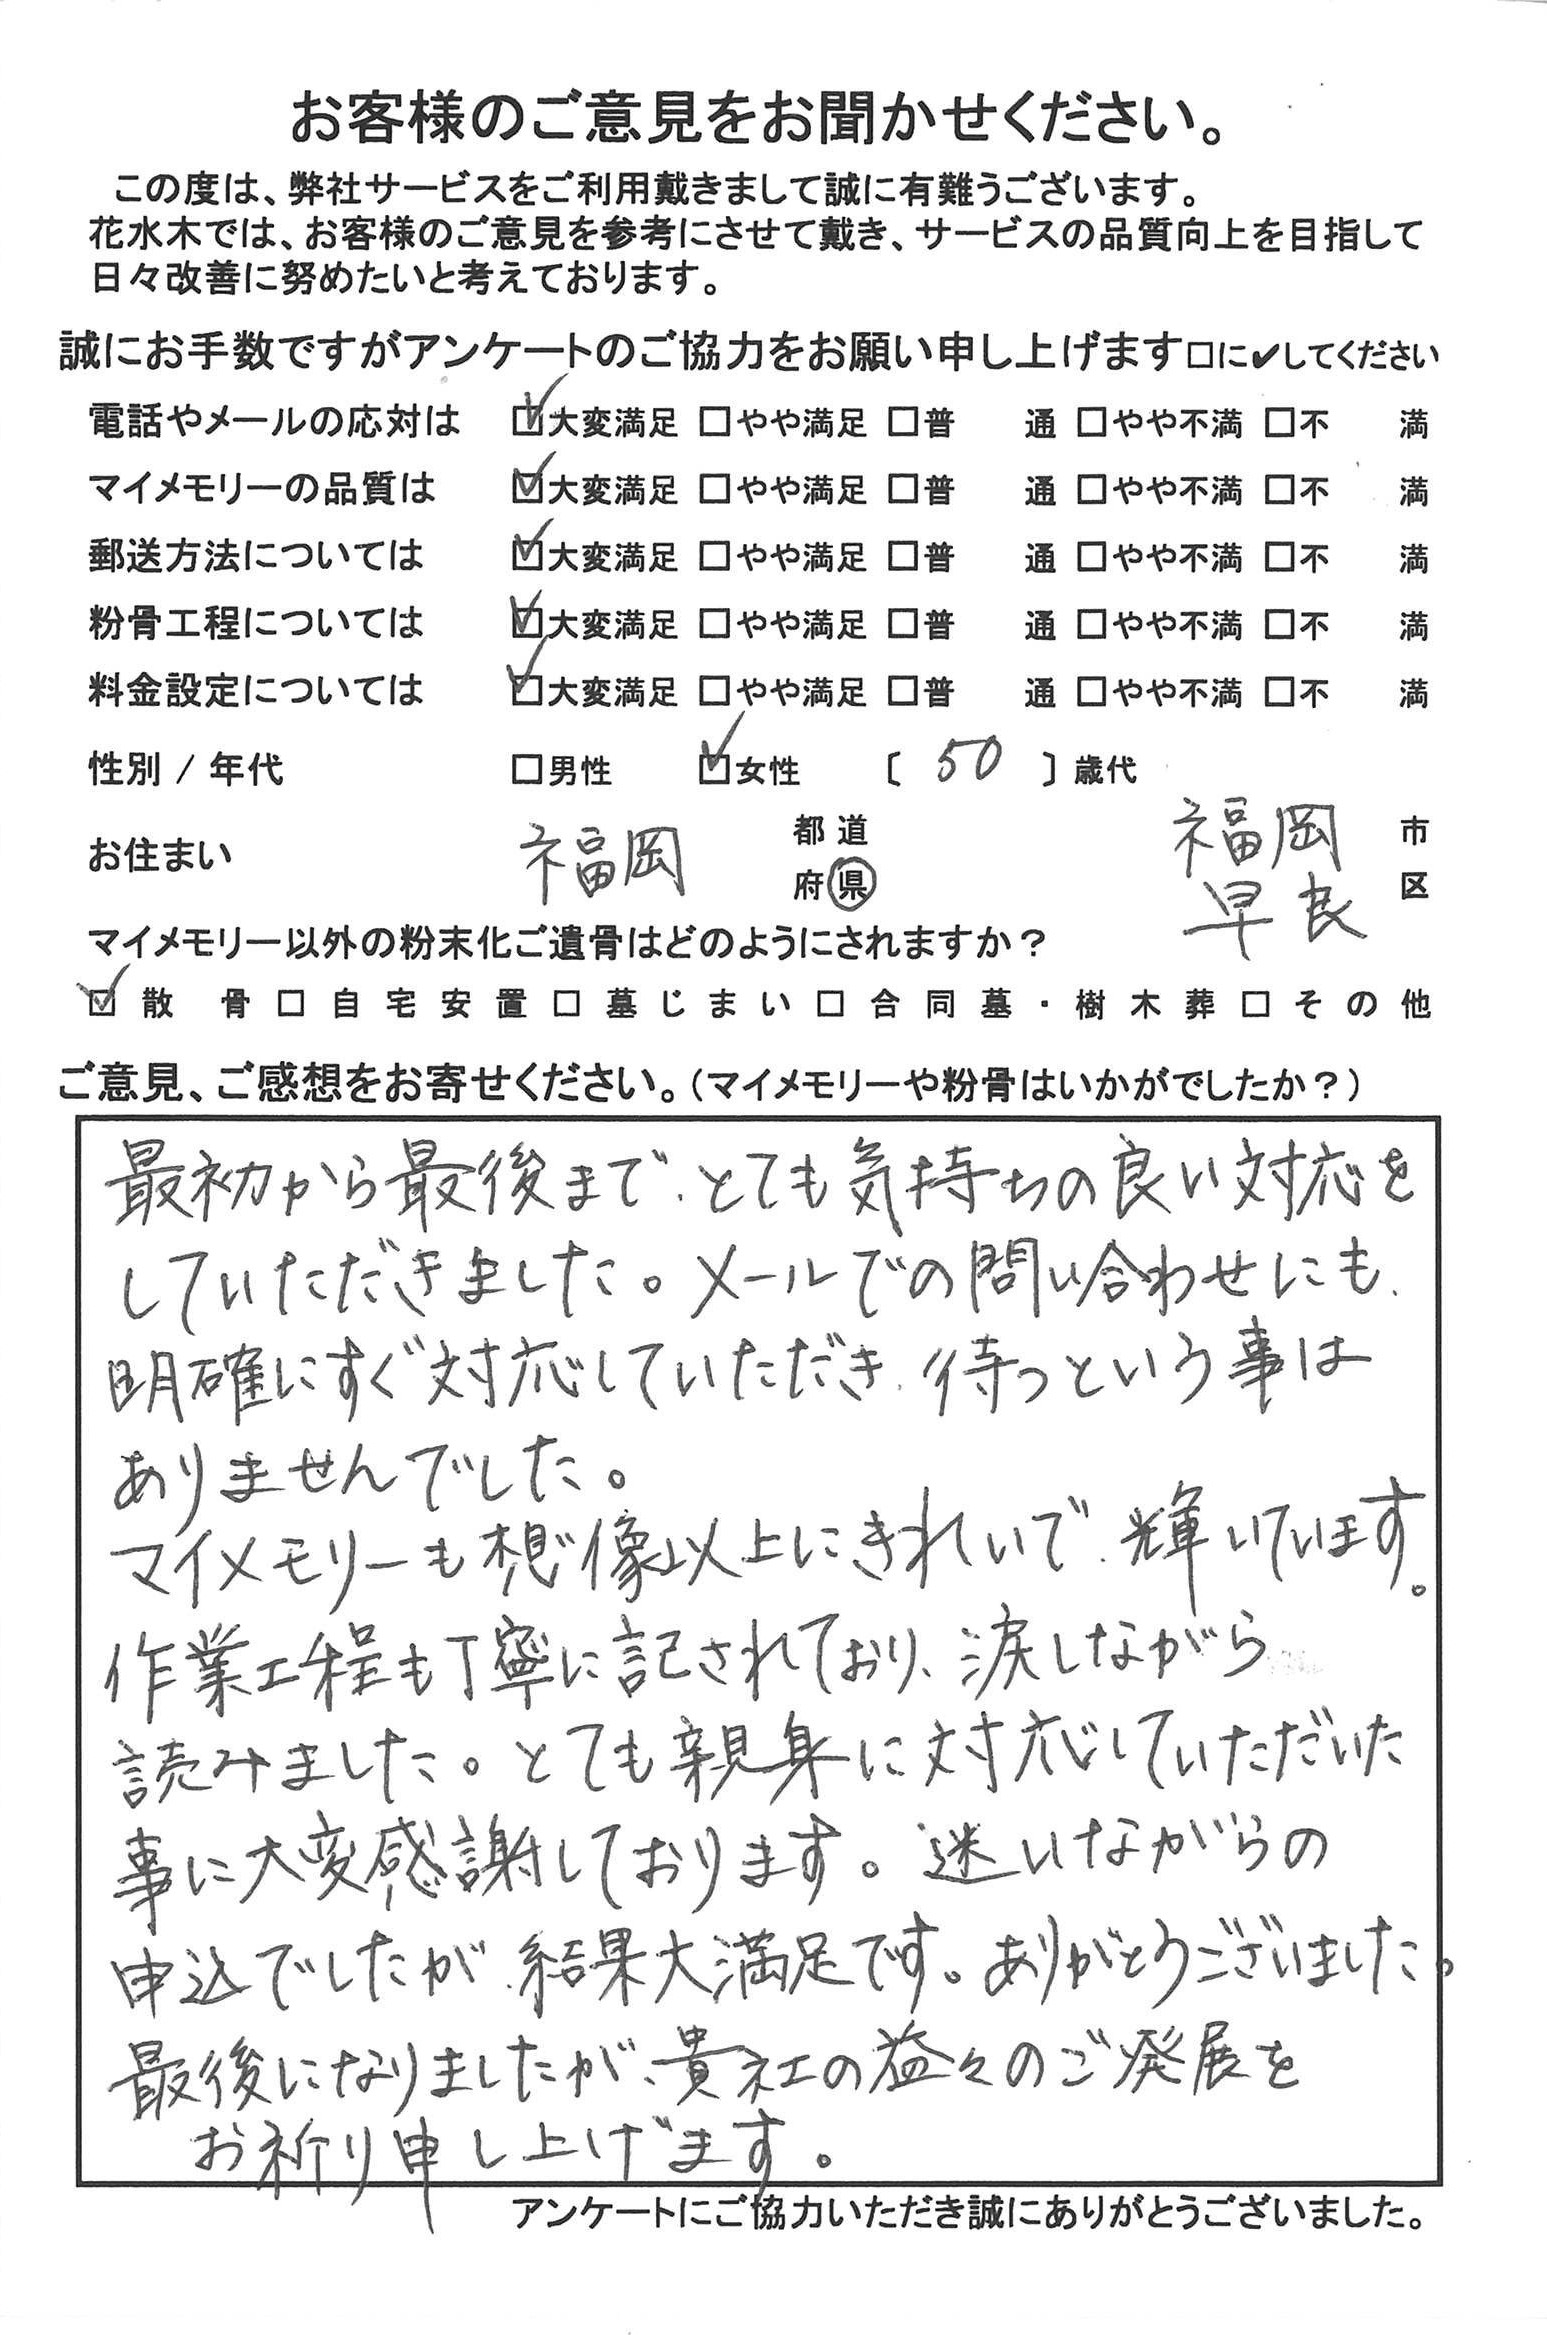 お客様のご意見をお聞かせください。
この度は、弊社サービスをご利用戴きまして誠に有難うございます。
花水木では、お客様のご意見を参考にさせて戴き、サービスの品質向上を目指して
日々改善に努めたいと考えております。
誠にお手数ですがアンケートのご協力をお願い申し上げます□に✔してください
電話やメールの応対は ☑大変満足 □やや満足 □普 通 □やや不満 □不 満
マイメモリーの品質は ☑大変満足 □やや満足 □普 通 □やや不満 □不 満
郵送方法については ☑大変満足 □やや満足 □普 通 □やや不満 □不 満
粉骨工程については ☑大変満足 □やや満足 □普 通 □やや不満 □不 満
料金設定については ☑大変満足 □やや満足 □普 通 □やや不満 □不 満
性別 / 年代 □男性 ☑女性 〔 50 〕歳代
お住まい 福岡 都道府県 福岡 市
早良 区
マイメモリー以外の粉末化ご遺骨はどのようにされますか？
☑ 散 骨 □ 自宅安置 □ 墓じまい □ 合同墓・樹木葬 □ その他
ご意見、ご感想をお寄せください。（マイメモリーや粉骨はいかがでしたか？）
最初から最後まで、とても気持ちの良い対応を
していただきました。メールでの問い合わせにも、
明確にすぐ対応していただき、待つという事は
ありませんでした。
マイメモリーも想像以上にきれいで、輝いています。
作業工程も丁寧に記されており、涙しながら
読みました。とても親身に対応していただいた
事に大変感謝しております。迷いながらの
申込でしたが、結果大満足です。ありがとうございました。
最後になりましたが、貴社の益々のご発展を
お祈り申し上げます。
アンケートにご協力いただき誠にありがとうございました。